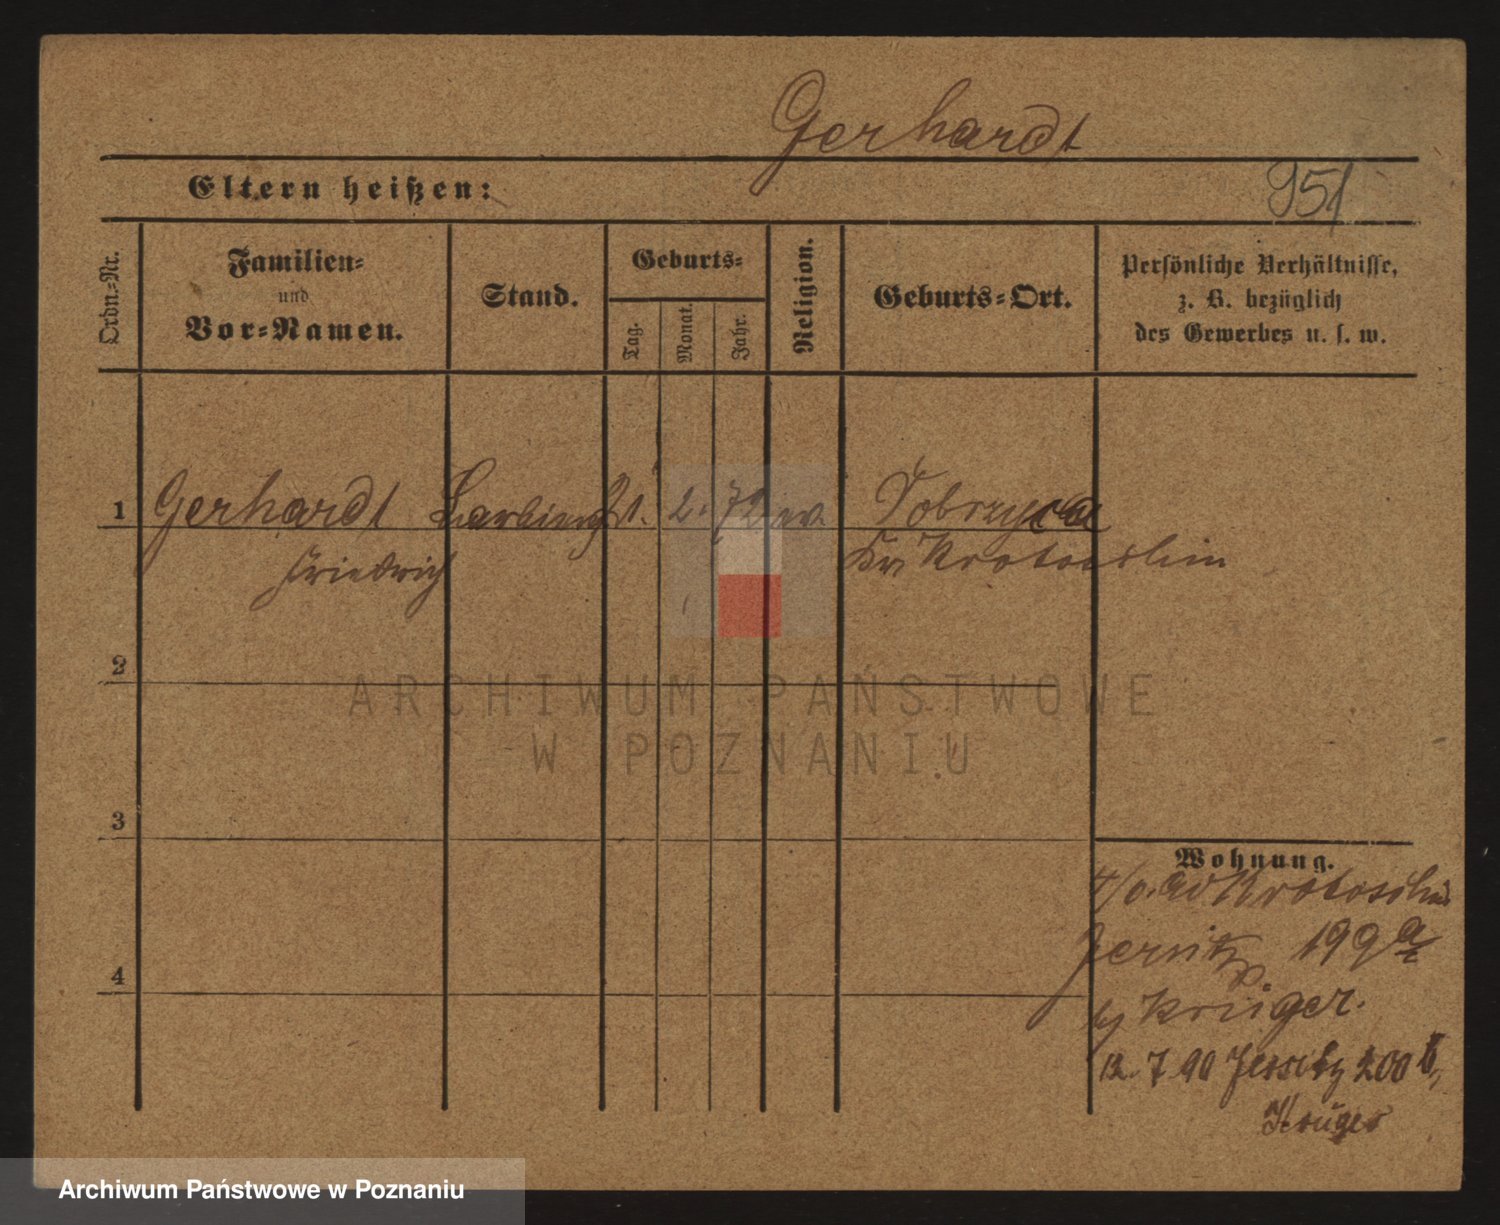 Gerhardt
Eltern heißen:
951
Ordn.-Nr.
Familien-
und
Vor-Namen.
Stand.
Geburts-
Tag.
Monat.
Jahr.
Religion.
Geburts-Ort.
Persönliche Verhältnisse,
z. B. bezüglich
des Gewerbes u. s. w.
1 Gerhardt 21. 2. 72 ev. Dobrzyca
Friedrich Kr Krotoschin
2
ARCHIWUM PAŃSTWOWE
W POZNANIU
3
Wohnung.
Krotoschin
4
Jersitz 199 a
bei Krüger.
12. 7. 90 Jersitz 200 b,
Krüger
Archiwum Państwowe w Poznaniu